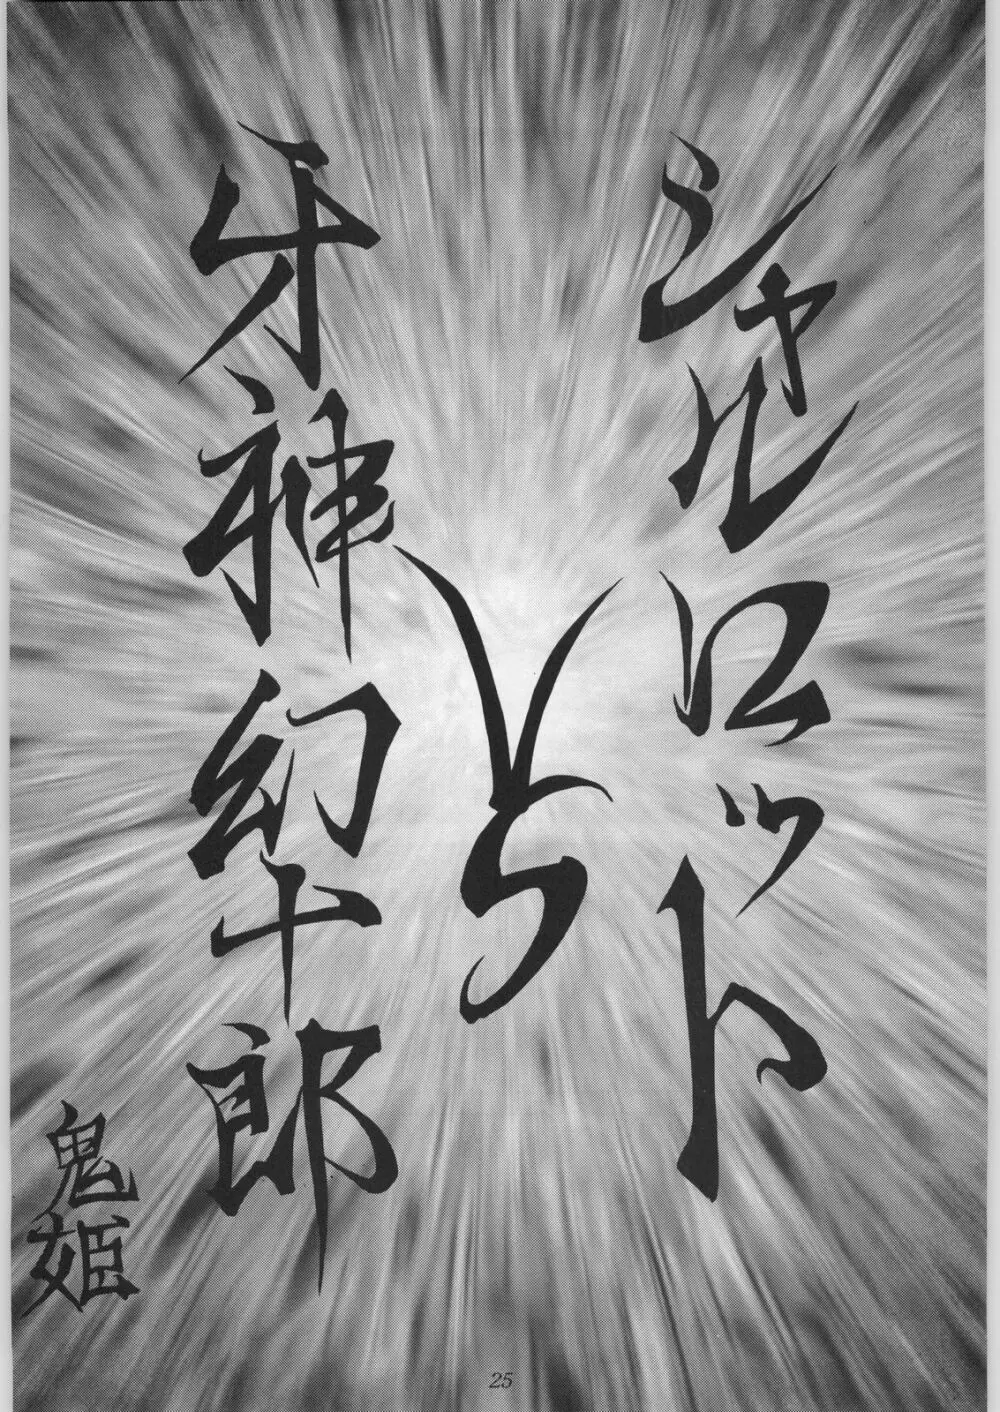 シャルロット
VS
牙神幻十郎
鬼姫
25